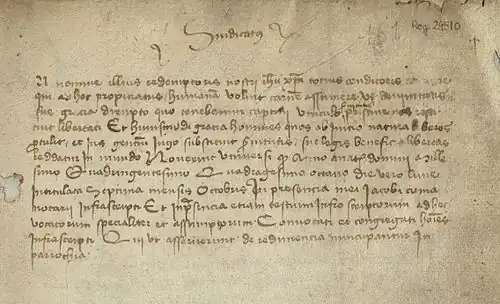 Sindicatus
Reg. 24510
N nomine illius redemptoris nostri ihu xpi totius conditoris
qui ad hoc propiciatus humanam voluit carnem assumere ut divinitatis
sue gracia dirupto quo tenebamur captivi vinculo pristine nos resti
tuit libertati Et huiusmodi gracia homines quos ab inicio natura liberos
ptulit et ius gentium iugo substituit sue legis beneficio libertati
reddatur in mundo Noverint universi Anno a nat domini Mille
simo Quadringentesimo Quadragesimo octavo die vero lune
intitulata Septima mensis Octobris In presencia mei Jacobi coma
notarii Infrascripti Et in presencia etiam testium infrascriptorum ad hec
vocatorum specialiter et assumptorum Convocati et congregati homines
infrascripti Qui ut asseruerunt de redimencia nuncupantur In
parrochia